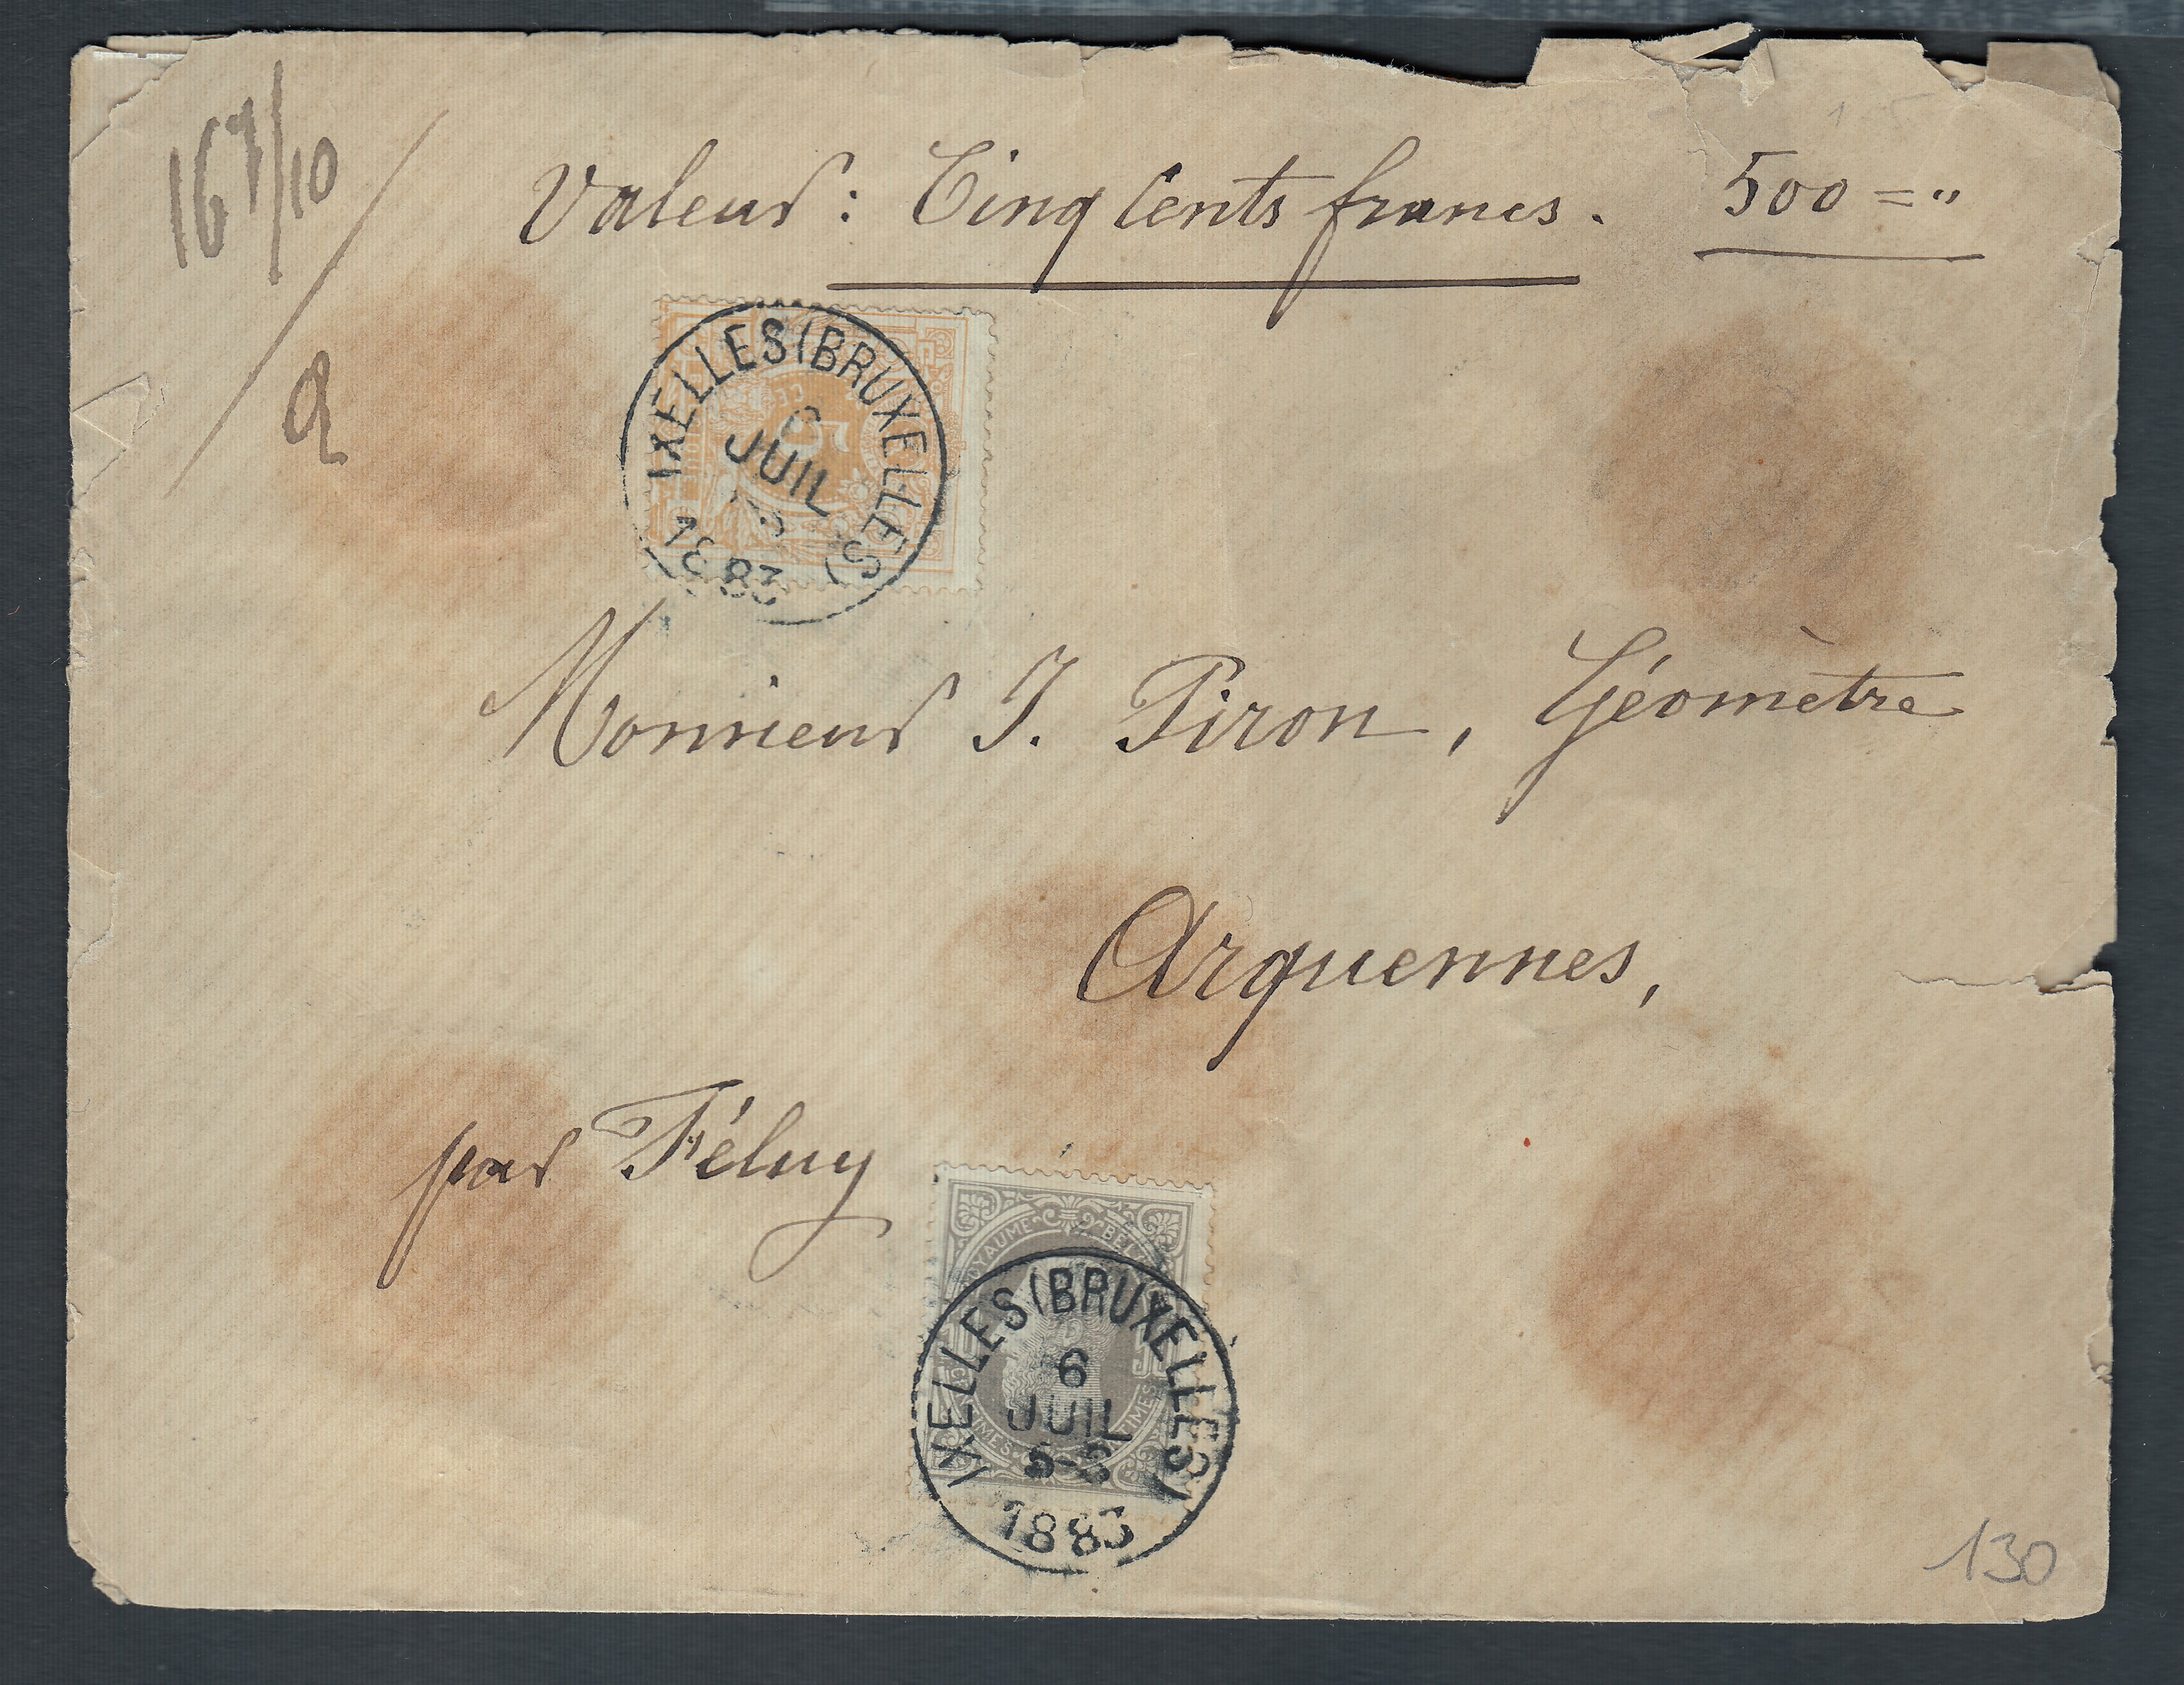 16 9/10
2
Valeur : Cinq Cents francs. 500 = "
IXELLES (BRUXELLES)
6
JUIL
1883
Monsieur J. Piron, Géomètre
Arquennes,
par Féluy
IXELLES (BRUXELLES)
6
JUIL
1883
130